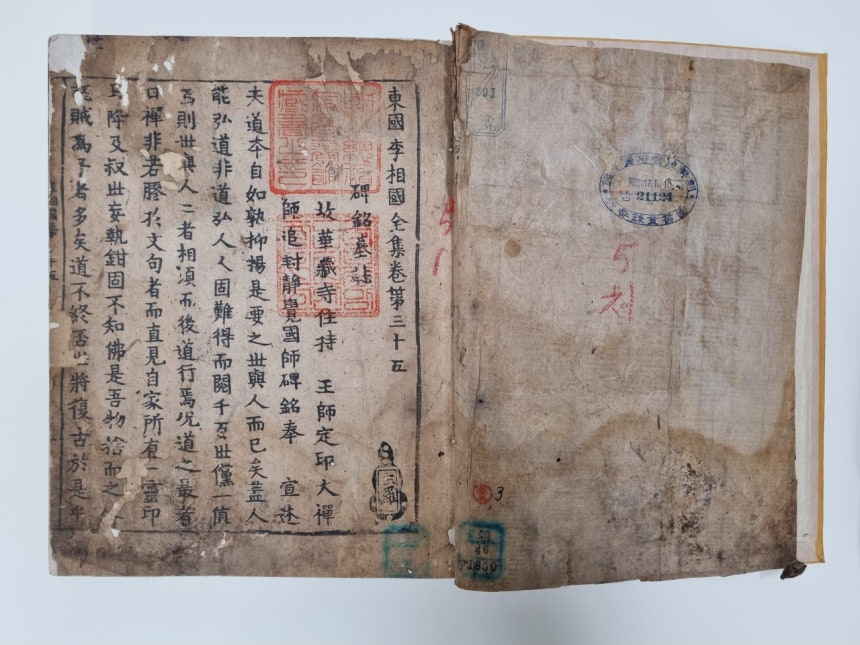 東國李相國全集卷第三十五
碑銘墓誌
故華藏寺住持 王師定印大禪
師追封靜覺國師碑銘奉 宣述
夫道本自如孰抑揚是要之世與人而已矣蓋人
能弘道非道弘人人固難得而閱千百世儻一值
焉則世與人二者相須而後道行焉況道之最者
曰禪非若膠於文句者而直見自家所有一靈印
耳降及叔世妄執鉗固不知佛是吾物捨而之
賊爲子者多矣道不終否必將復古於是乎
21124
5
책
3
朝
46